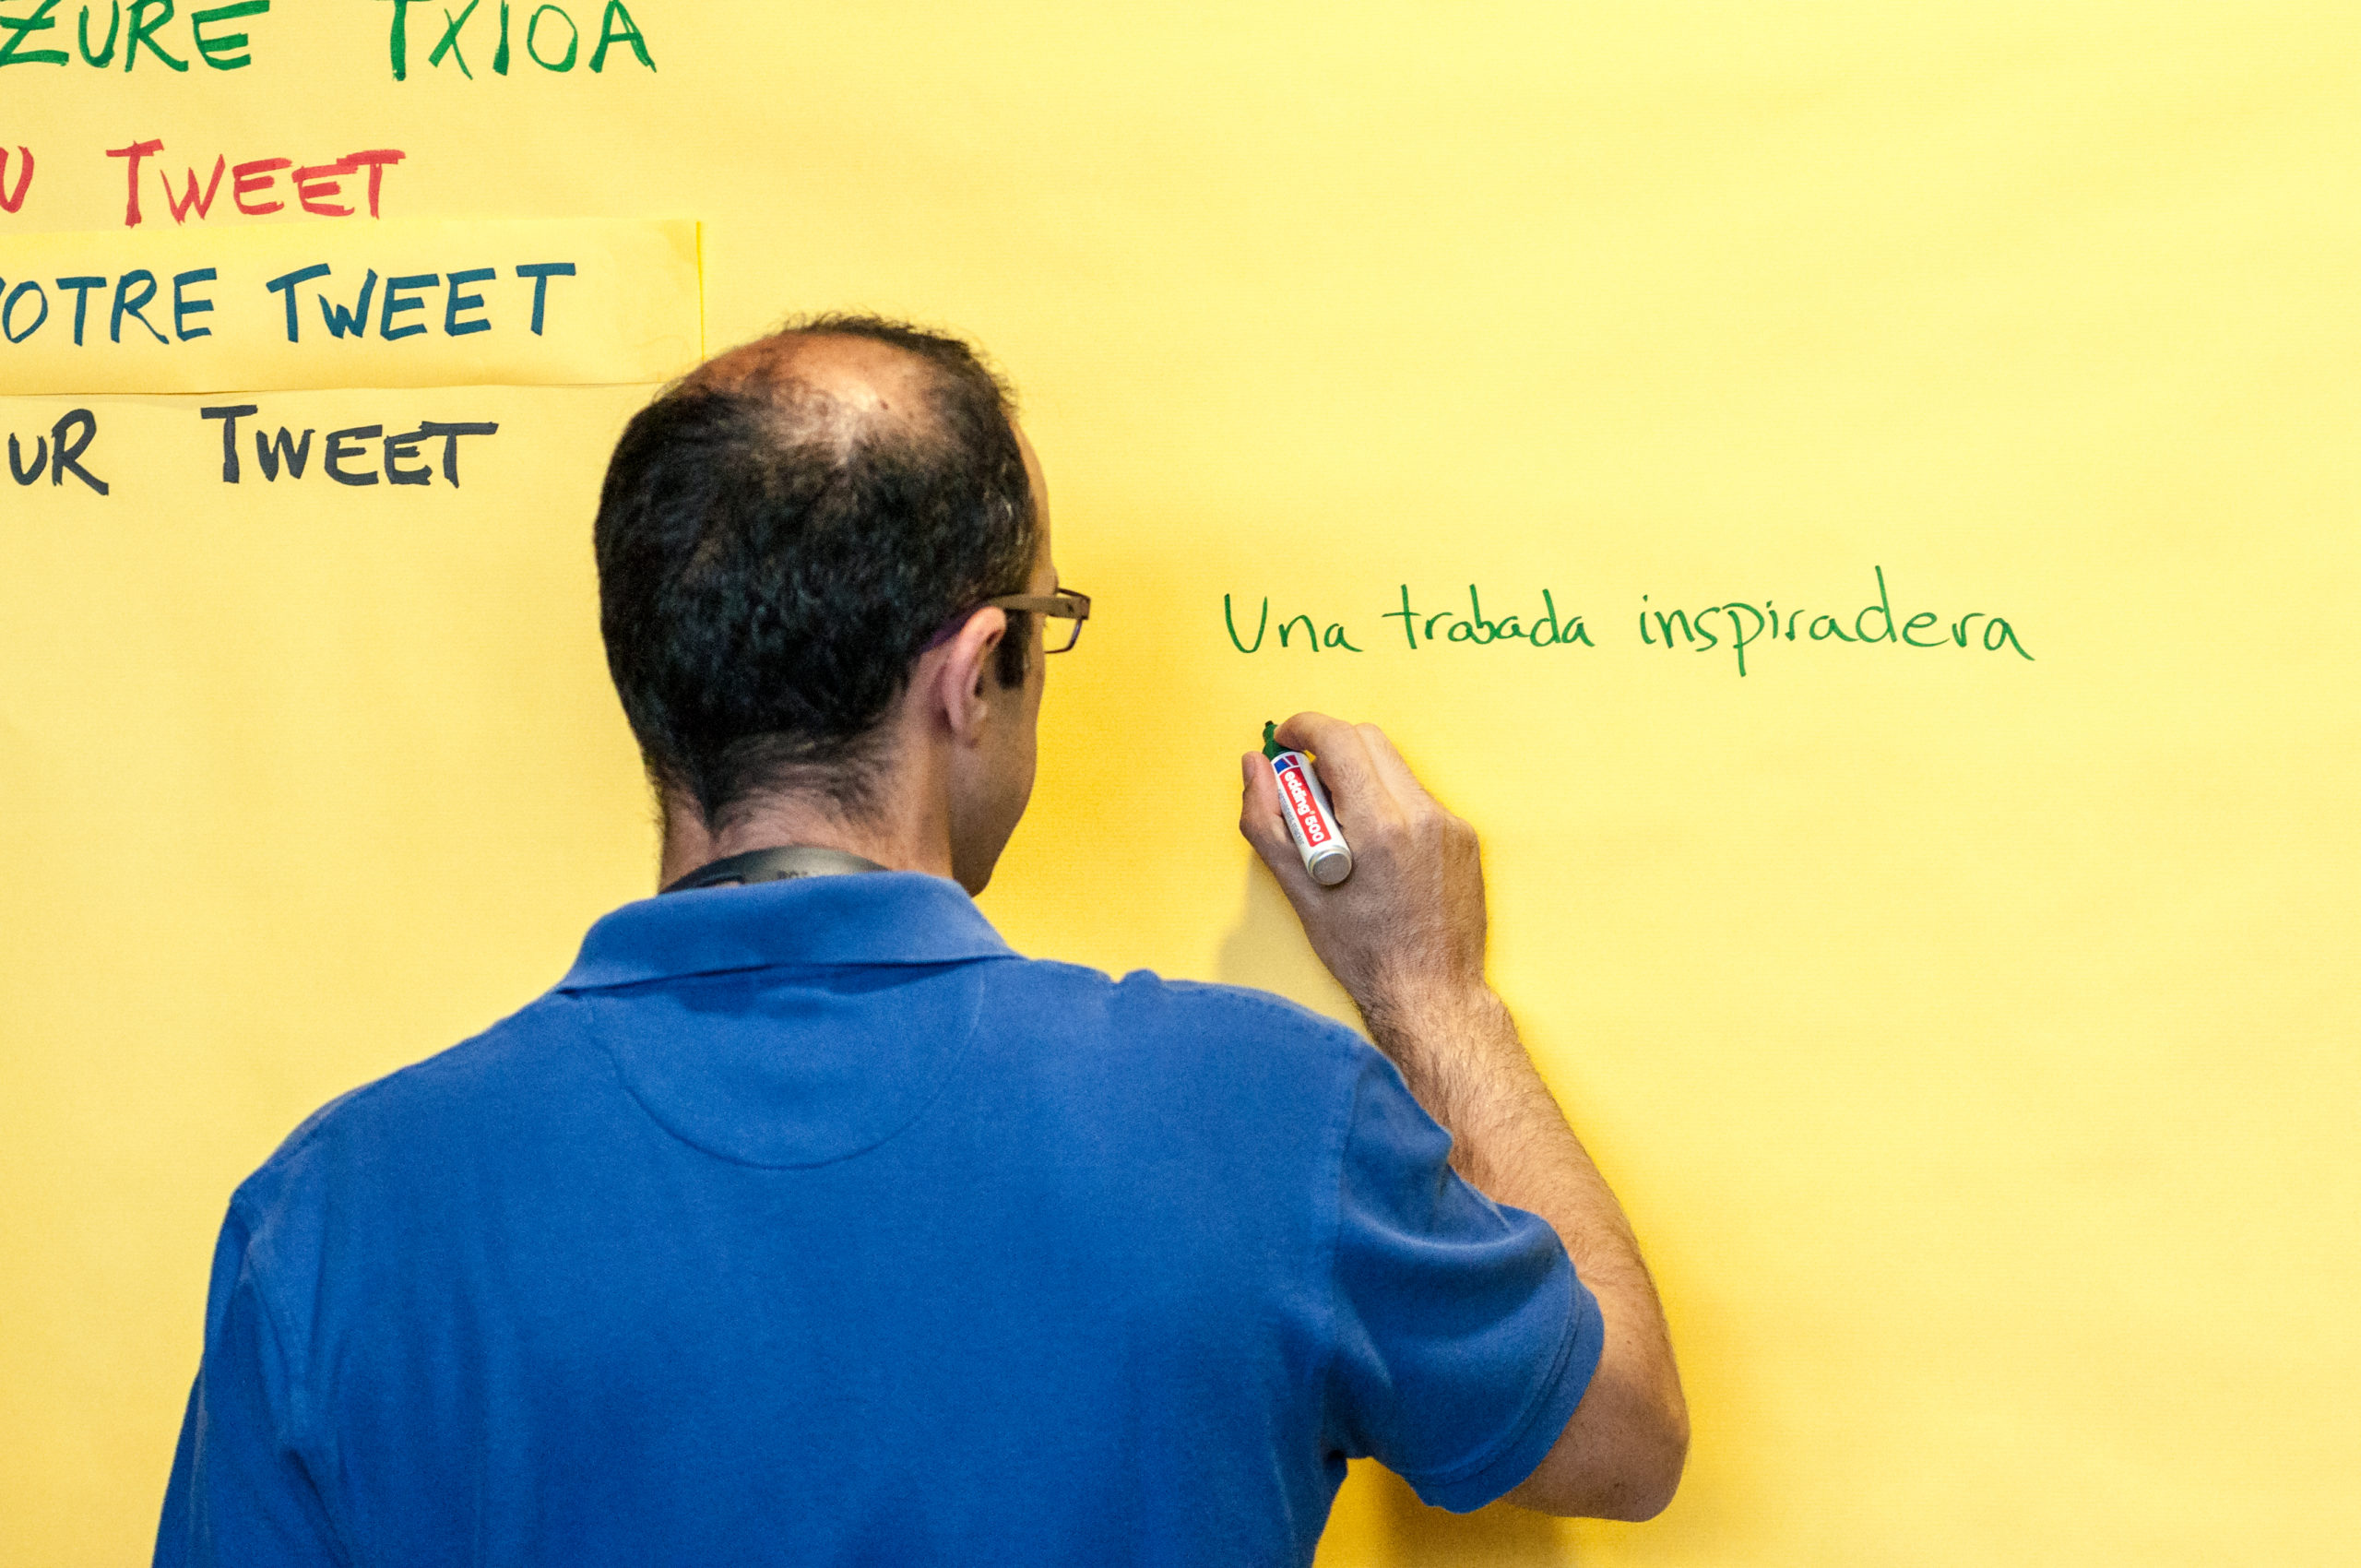 ZURE TXIOA
U TWEET
VOTRE TWEET
UR TWEET
Una trobada inspiradera
edding 500